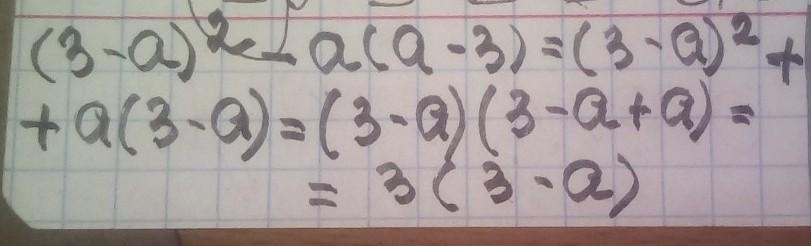 (3-a)² - a(a-3) = (3-a)² +
+ a(3-a) = (3-a)(3-a+a) =
= 3(3-a)